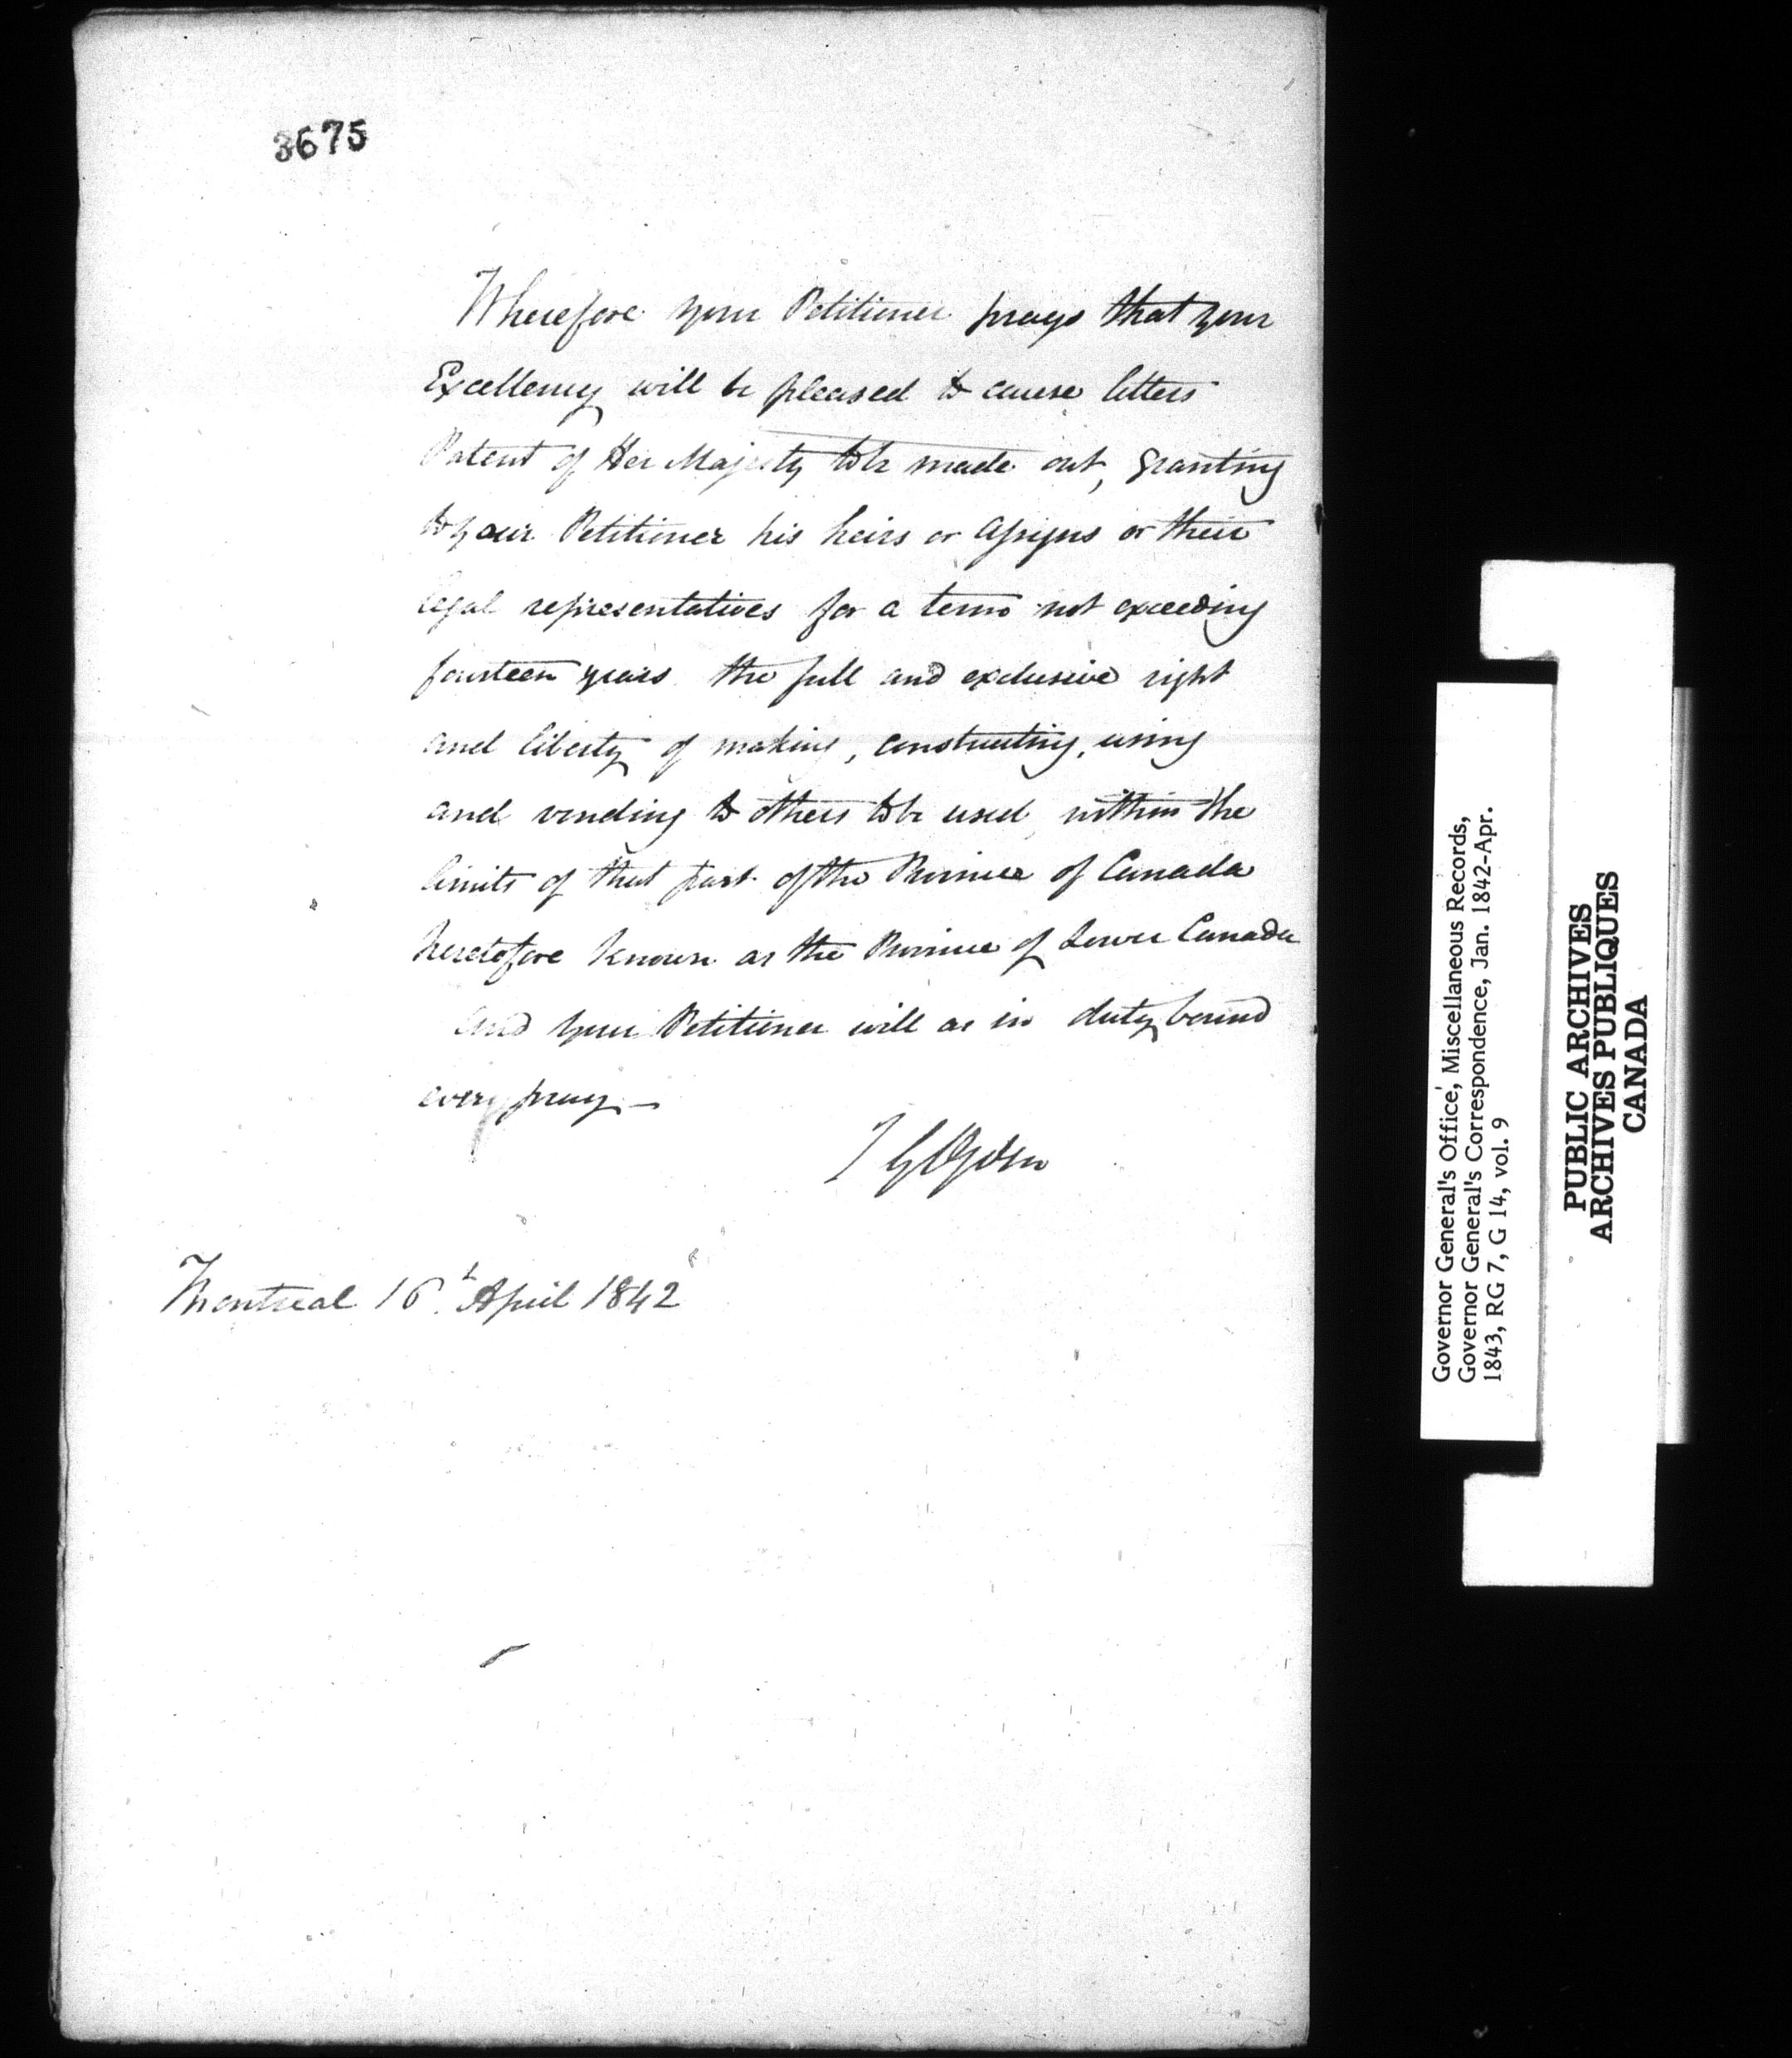 3675
Wherefore your Petitioner prays that your
Excellency will be pleased to cause letters
Patent of Her Majesty to be made out, granting
to your Petitioner his heirs or assigns or their
legal representatives for a term not exceeding
fourteen years the full and exclusive right
and liberty of making, constructing, using
and vending to others to be used within the
limits of that part of the Province of Canada
heretofore known as the Province of Lower Canada
And your Petitioner will as in duty bound
every pray —
Ogden
Montreal 16th April 1842
Governor General's Office, Miscellaneous Records,
Governor General's Correspondence, Jan. 1842-Apr.
1843, RG 7, G 14, vol. 9
PUBLIC ARCHIVES
ARCHIVES PUBLIQUES
CANADA